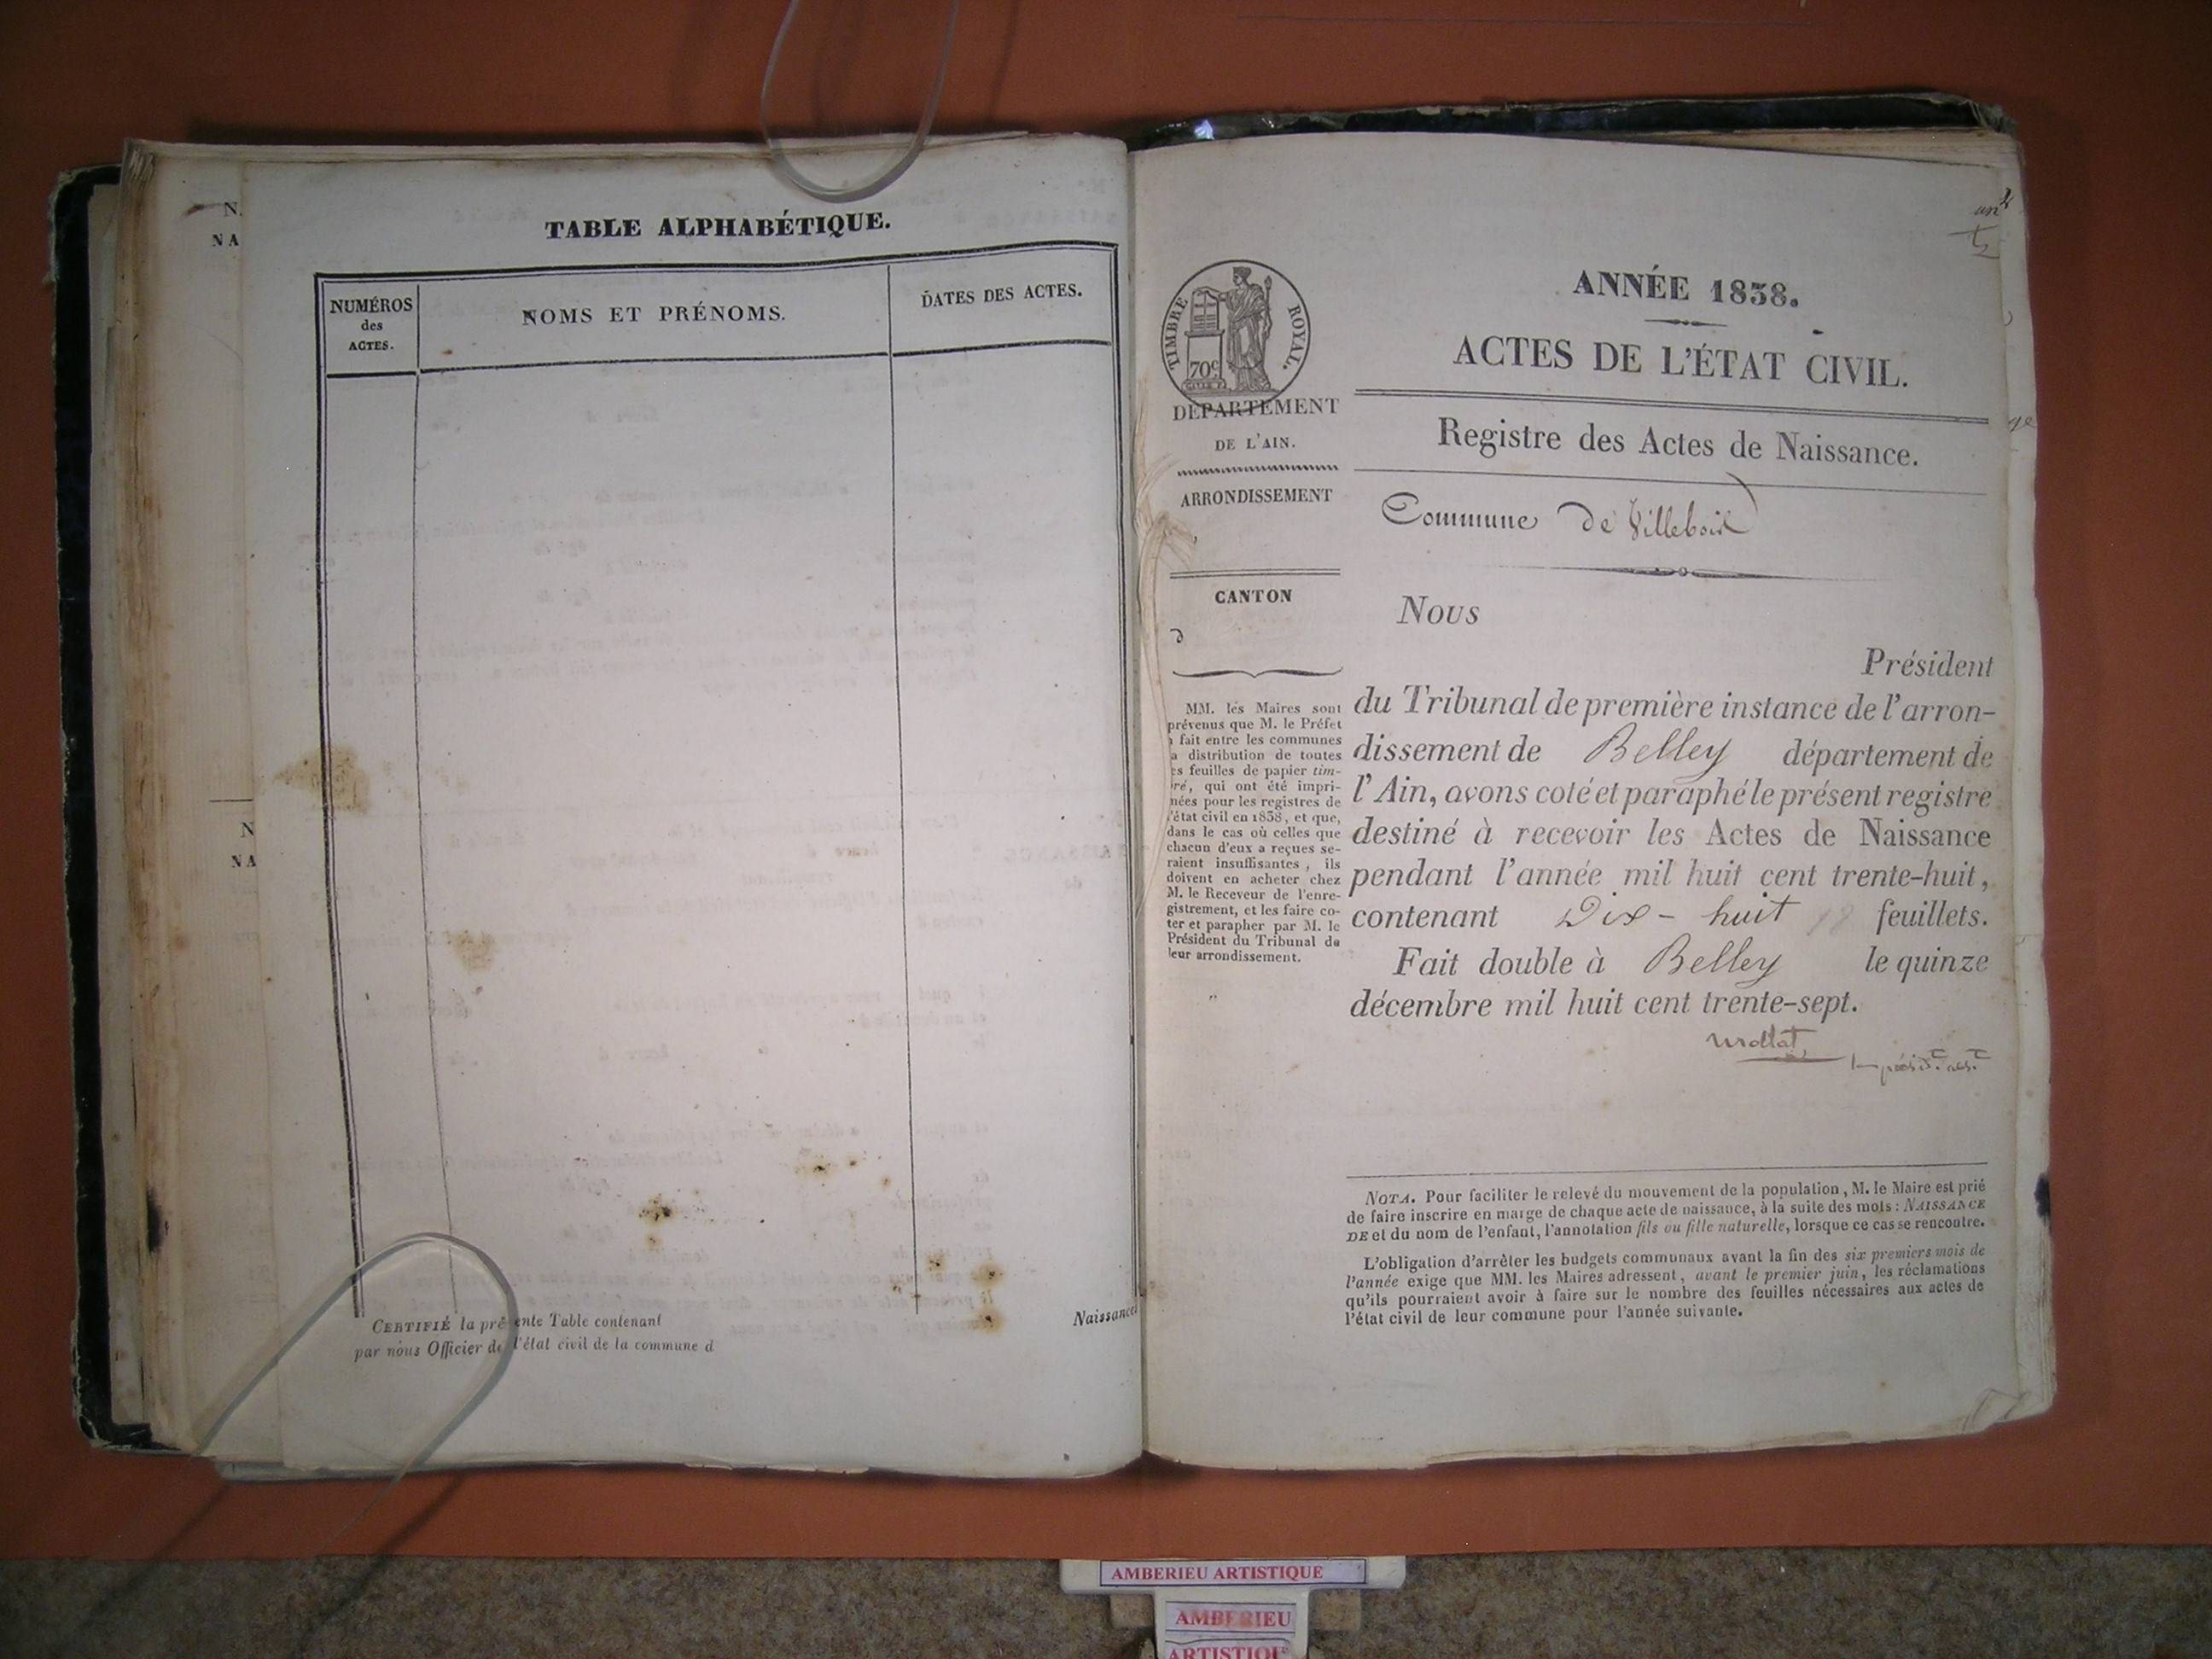 N.
NA
TABLE ALPHABÉTIQUE.
NUMÉROS
des
ACTES.
NOMS ET PRÉNOMS.
DATES DES ACTES.
N
NA
CERTIFIÉ la présente Table contenant
par nous Officier de l'état civil de la commune d
Naissance
TIMBRE ROYAL.
70c
DÉPARTEMENT
DE L'AIN.
ARRONDISSEMENT
CANTON
d
MM. les Maires sont
prévenus que M. le Préfet
a fait entre les communes
a distribution de toutes
es feuilles de papier tim-
ré, qui ont été impri-
mées pour les registres de
l'état civil en 1838, et que,
dans le cas où celles que
chacun d'eux a reçues se-
raient insuffisantes, ils
doivent en acheter chez
M. le Receveur de l'enre-
gistrement, et les faire co-
ter et parapher par M. le
Président du Tribunal de
leur arrondissement.
ANNÉE 1838.
ACTES DE L'ÉTAT CIVIL.
Registre des Actes de Naissance.
Commune de Villebois
Nous
Président
du Tribunal de première instance de l'arron-
dissement de Belley département de
l'Ain, avons coté et paraphé le présent registre
destiné à recevoir les Actes de Naissance
pendant l'année mil huit cent trente-huit,
contenant Dix-huit 18 feuillets.
Fait double à Belley le quinze
décembre mil huit cent trente-sept.
NOTA. Pour faciliter le relevé du mouvement de la population, M. le Maire est prié
de faire inscrire en marge de chaque acte de naissance, à la suite des mots: NAISSANCE
DE et du nom de l'enfant, l'annotation fils ou fille naturelle, lorsque ce cas se rencontre.
L'obligation d'arrêter les budgets communaux avant la fin des six premiers mois de
l'année exige que MM. les Maires adressent, avant le premier juin, les réclamations
qu'ils pourraient avoir à faire sur le nombre des feuilles nécessaires aux actes de
l'état civil de leur commune pour l'année suivante.
AMBERIEU ARTISTIQUE
AMBERIEU
ARTISTIQUE